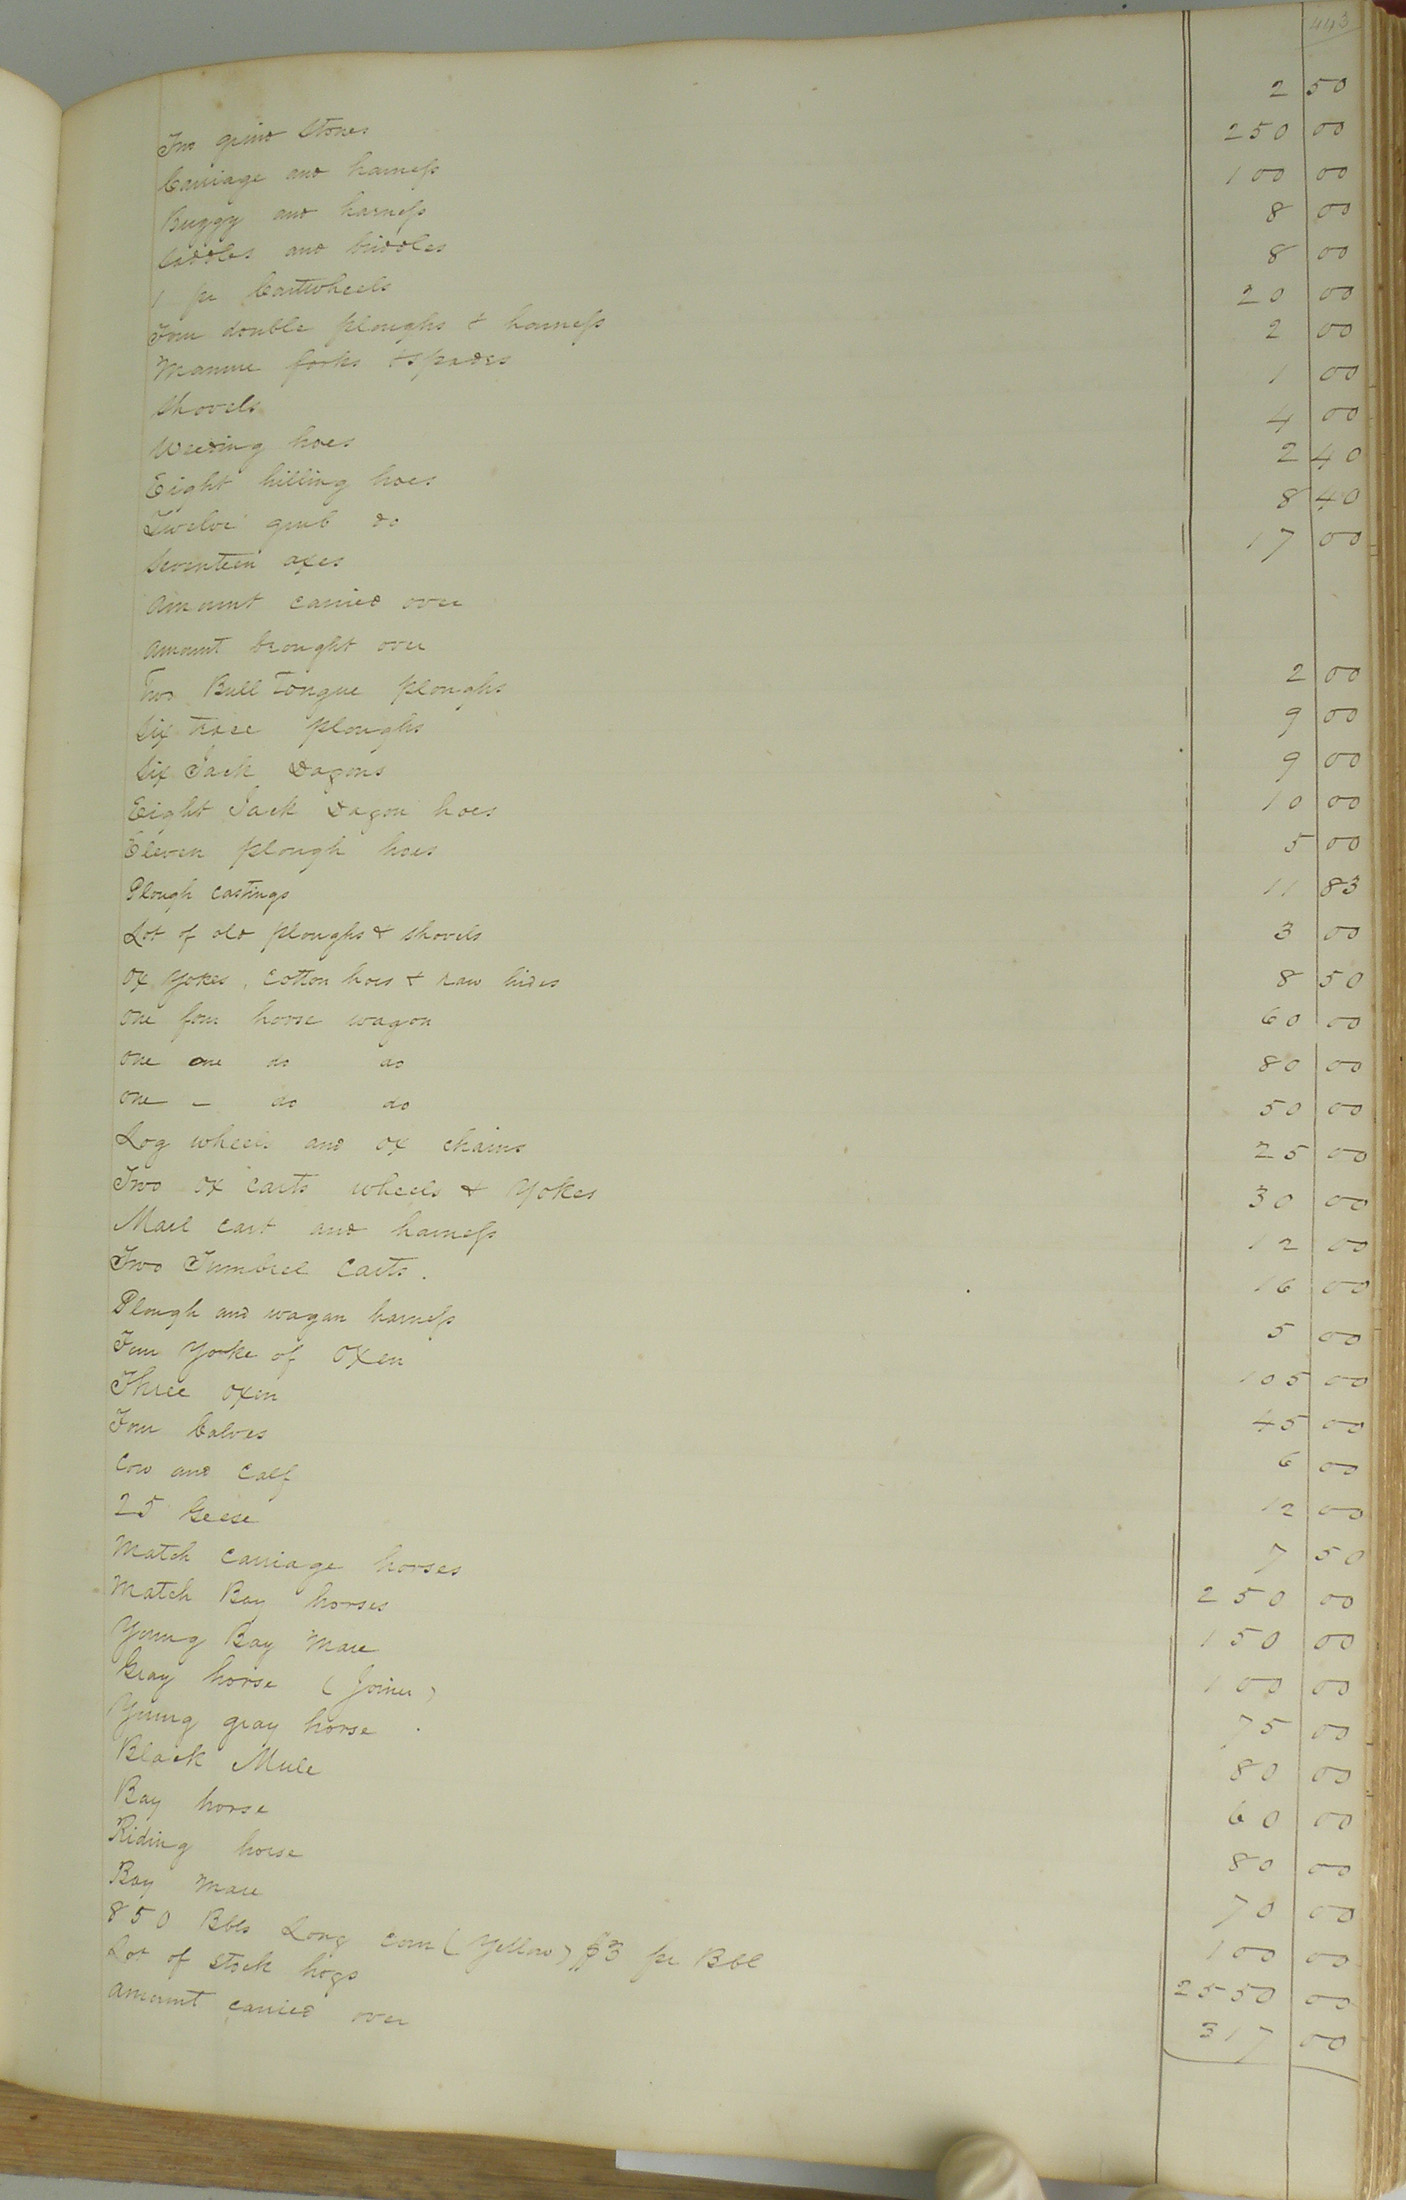 443
Two grind stones 2 50
Carriage and harness 250 00
Buggy and harness 100 00
Saddles and bridles 8 00
1 pr Cartwheels 8 00
Four double ploughs & harness 20 00
Manure forks & spades 2 00
Shovels 1 00
Weeding hoes 4 00
Eight hilling hoes 2 40
Twelve grub do 8 40
Seventeen axes 17 00
Amount carried over
Amount brought over
Two Bull Tongue ploughs 2 00
Six trace ploughs 9 00
Six Jack Dagons 9 00
Eight Jack Dagon hoes 10 00
Eleven plough hoes 5 00
Plough castings 11 83
Lot of old ploughs & shovels 3 00
Ox yokes, cotton hoes & raw hides 8 50
One four horse wagon 60 00
One one do do 80 00
One – do do 50 00
Log wheels and ox chains 25 00
Two ox carts wheels & Yokes 30 00
Mail cart and harness 12 00
Two Tumbrel Carts. 16 00
Plough and wagon harness 5 00
Four Yoke of Oxen 105 00
Three oxen 45 00
Four Calves 6 00
Cow and Calf 12 00
25 Geese 7 50
Match carriage horses 250 00
Match Bay horses 150 00
Young Bay Mare 100 00
Gray horse (Joiner) 75 00
Young gray horse. 80 00
Black Mule 60 00
Bay horse 80 00
Riding horse 70 00
Bay Mare 100 00
850 Bbls Long corn (Yellow) $3 pr Bbl 2550 00
Lot of stock hogs 317 00
Amount carried over